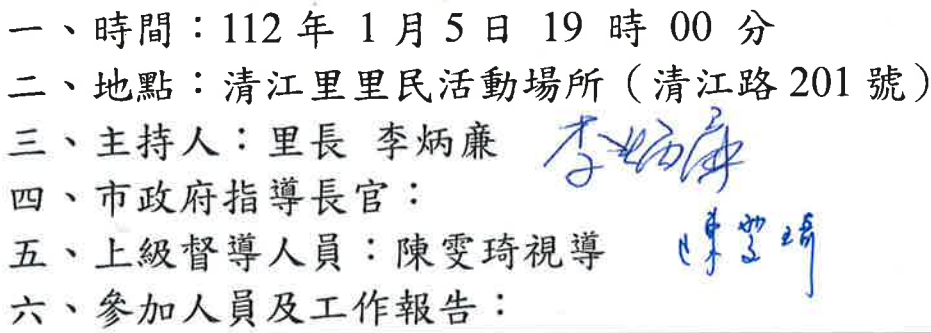 一、時間：112 年 1 月 5 日 19 時 00 分
二、地點：清江里里民活動場所（清江路 201 號）
三、主持人：里長 李炳廉 李炳廉
四、市政府指導長官：
五、上級督導人員：陳雯琦視導 陳雯琦
六、參加人員及工作報告：